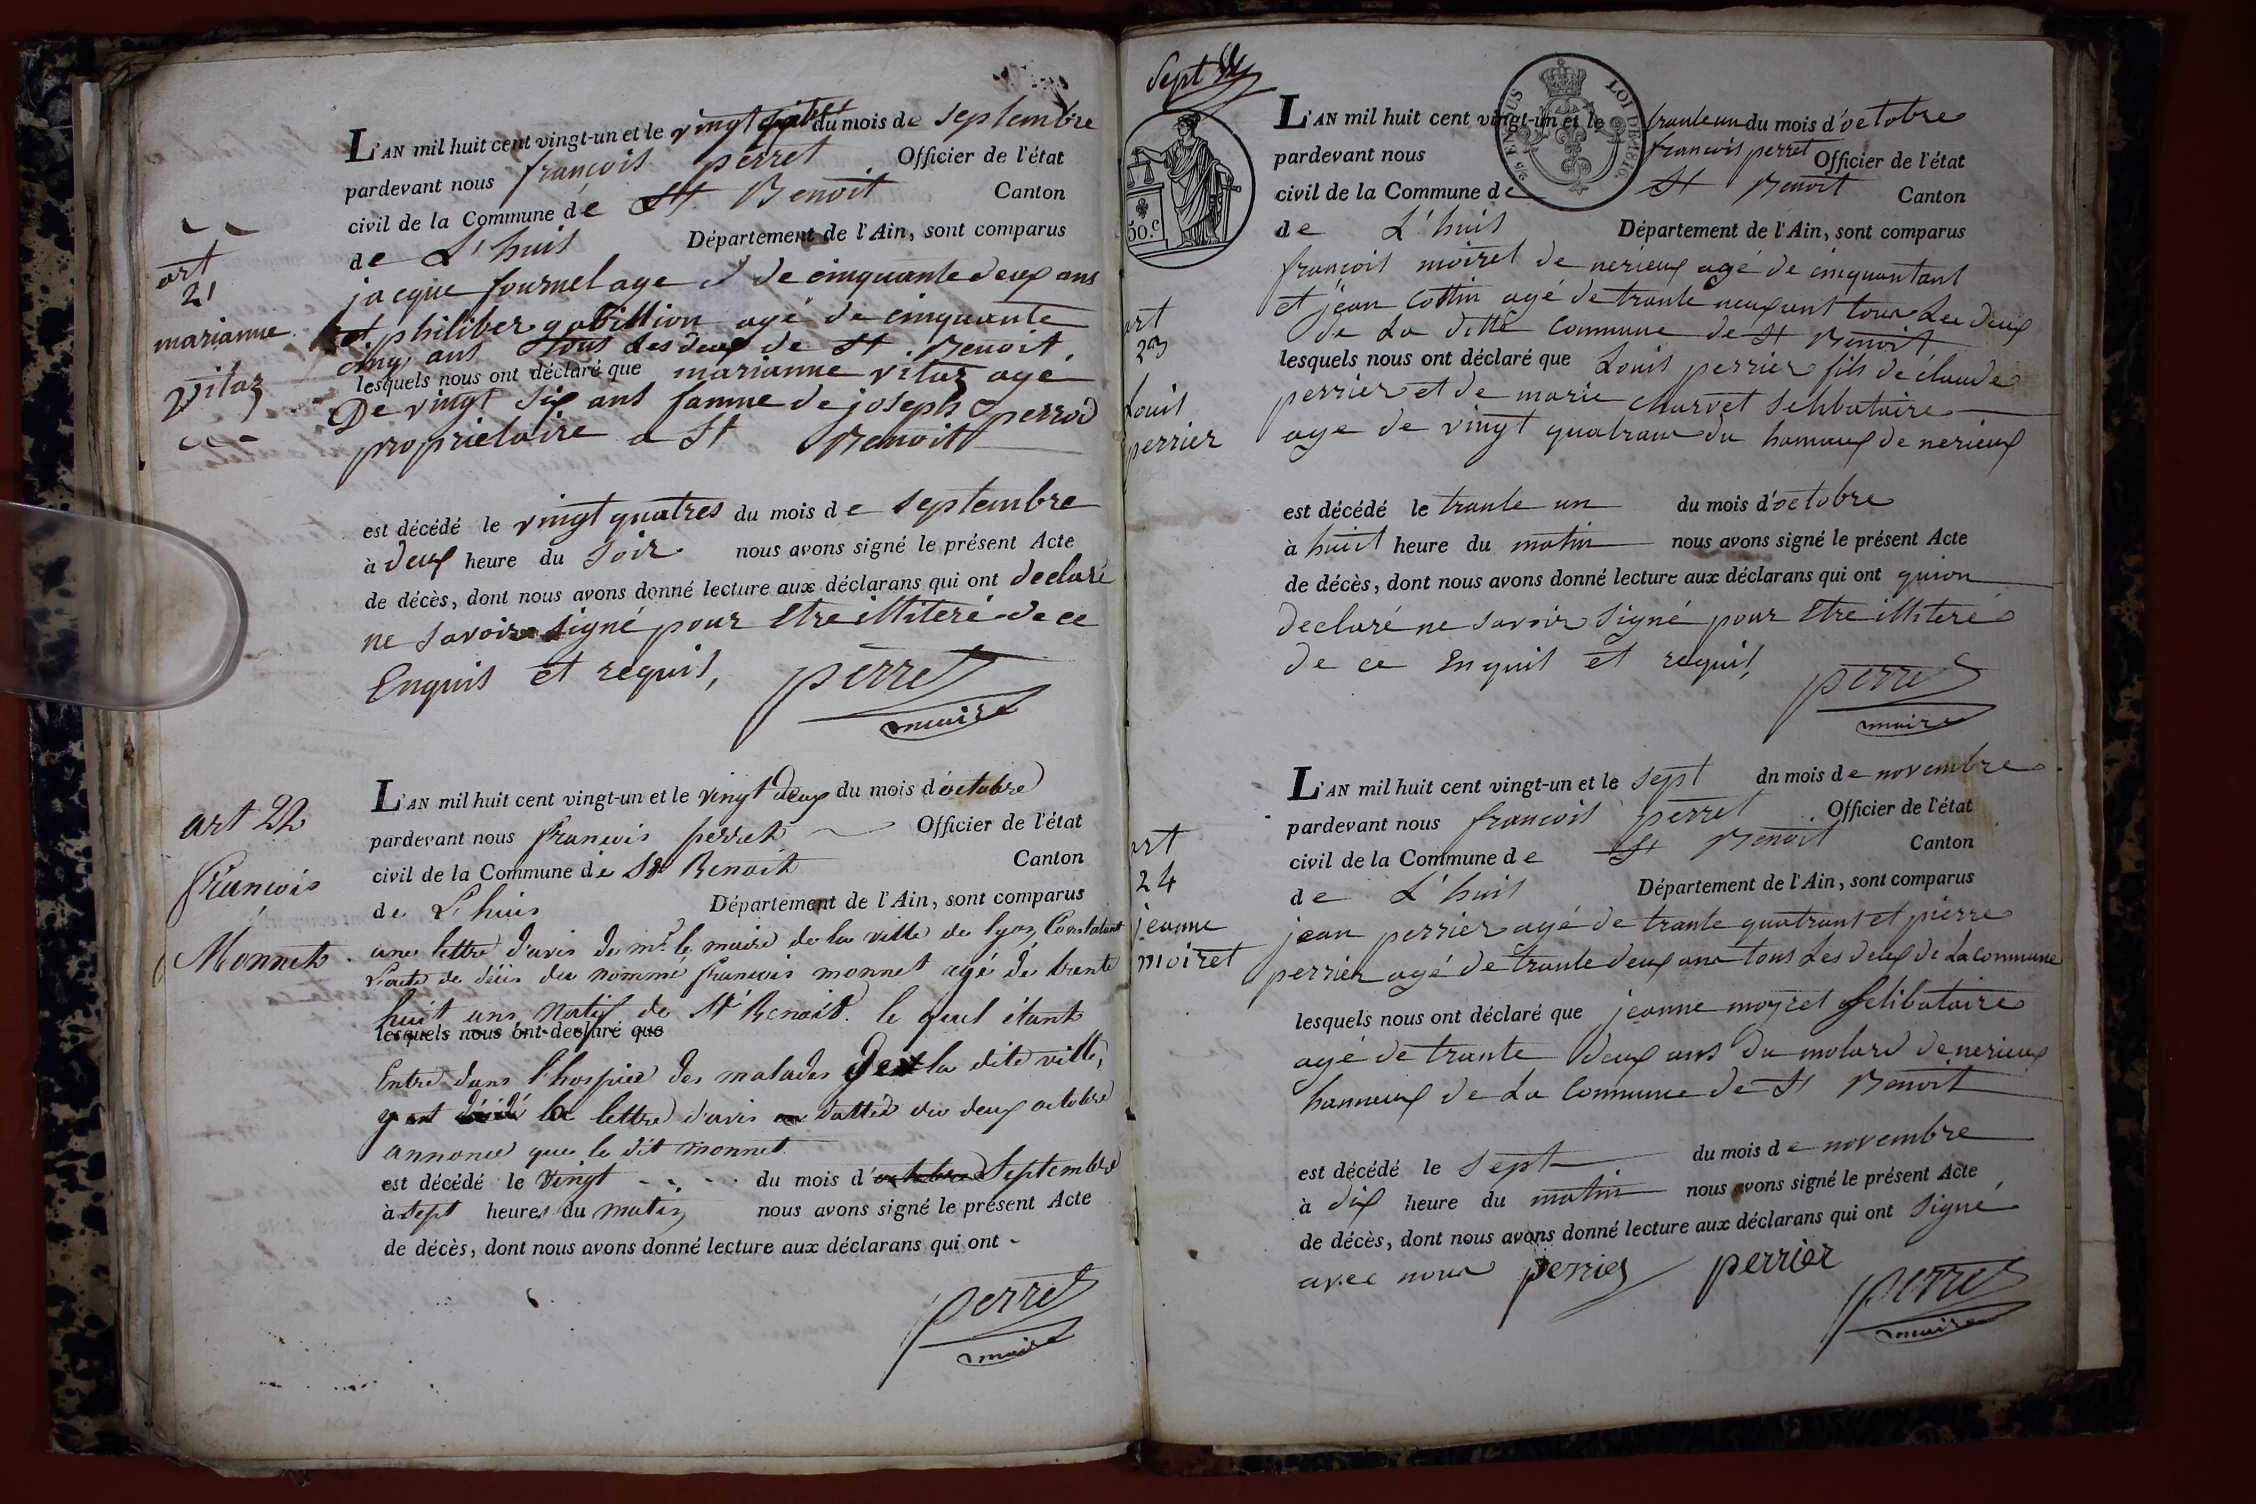 art
21
marianne
vitaz
L'AN mil huit cent vingt-un et le vingt du mois de septembre
pardevant nous françois perret Officier de l'état
civil de la Commune de St Benoit Canton
de L'huis Département de l'Ain, sont comparus
jacque fournel age de cinquante deux ans
et philiber gobillion agé de cinquante
cinq ans tous les deux de St Benoit
lesquels nous ont déclaré que marianne vitaz agé
De vingt six ans famme de joseph perrod
proprietaire a St Benoit
est décédé le vingt quatres du mois de septembre
à deux heure du soir nous avons signé le présent Acte
de décès, dont nous avons donné lecture aux déclarans qui ont declaré
ne savoir signé pour Etre illiteré de ce
Enquis et requis,
perret
maire
art 22
François
Monnet
L'AN mil huit cent vingt-un et le vingt deux du mois d'octobre
pardevant nous françois perret Officier de l'état
civil de la Commune de St Benoit Canton
de L'huis Département de l'Ain, sont comparus
une lettre d'avis de mr le maire de la ville de lyon Constatant
l'acte de décès du nommé françois monnet agé de trente
huit ans, Natif de St Benoit. le quel étant
lesquels nous ont déclaré que
Entré dans l'hospice des malades de la dite ville,
y est décédé la lettre d'avis dattée du deux octobre
annonce que le dit monnet
est décédé le vingt du mois d'octobre Septembre
à sept heures du matin nous avons signé le présent Acte
de décès, dont nous avons donné lecture aux déclarans qui ont -
perret
maire
Sept
EN SUS LOI DE 1816
50.c
art
23
Louis
perrier
L'AN mil huit cent vingt-un et le trante un du mois d'octobre
pardevant nous françois perret Officier de l'état
civil de la Commune de St Benoit Canton
de L'huis Département de l'Ain, sont comparus
françois moiret de nerieux agé de cinquantant
et jean Cottin agé de trante neuf ant tous Les deux
de La ditte Commune de St Benoit
lesquels nous ont déclaré que Louis perrier fils de claude
perrier et de marie charvet selibataire
age de vingt quatrans du hamaux de nerieux
est décédé le trante un du mois d'octobre
à huit heure du matin nous avons signé le présent Acte
de décès, dont nous avons donné lecture aux déclarans qui ont quion
declaré ne savoir signé pour Etre illiteré
de ce Enquis et requis,
perret
maire
art
24
jeanne
moiret
L'AN mil huit cent vingt-un et le sept du mois de novembre
pardevant nous françois perret Officier de l'état
civil de la Commune de St Benoit Canton
de L'huis Département de l'Ain, sont comparus
jean perrier agé de trante quatrant et pierre
perrier agé de trante deux ans tous Les deux de La commune
lesquels nous ont déclaré que jeanne moyret selibataire
agé de trante deux ans du molard de nerieux
hamaux de La Commune de St Benoit
est décédé le sept du mois de novembre
à dix heure du matin nous avons signé le présent Acte
de décès, dont nous avons donné lecture aux déclarans qui ont signé
avec nous perrier perrier
perret
maire